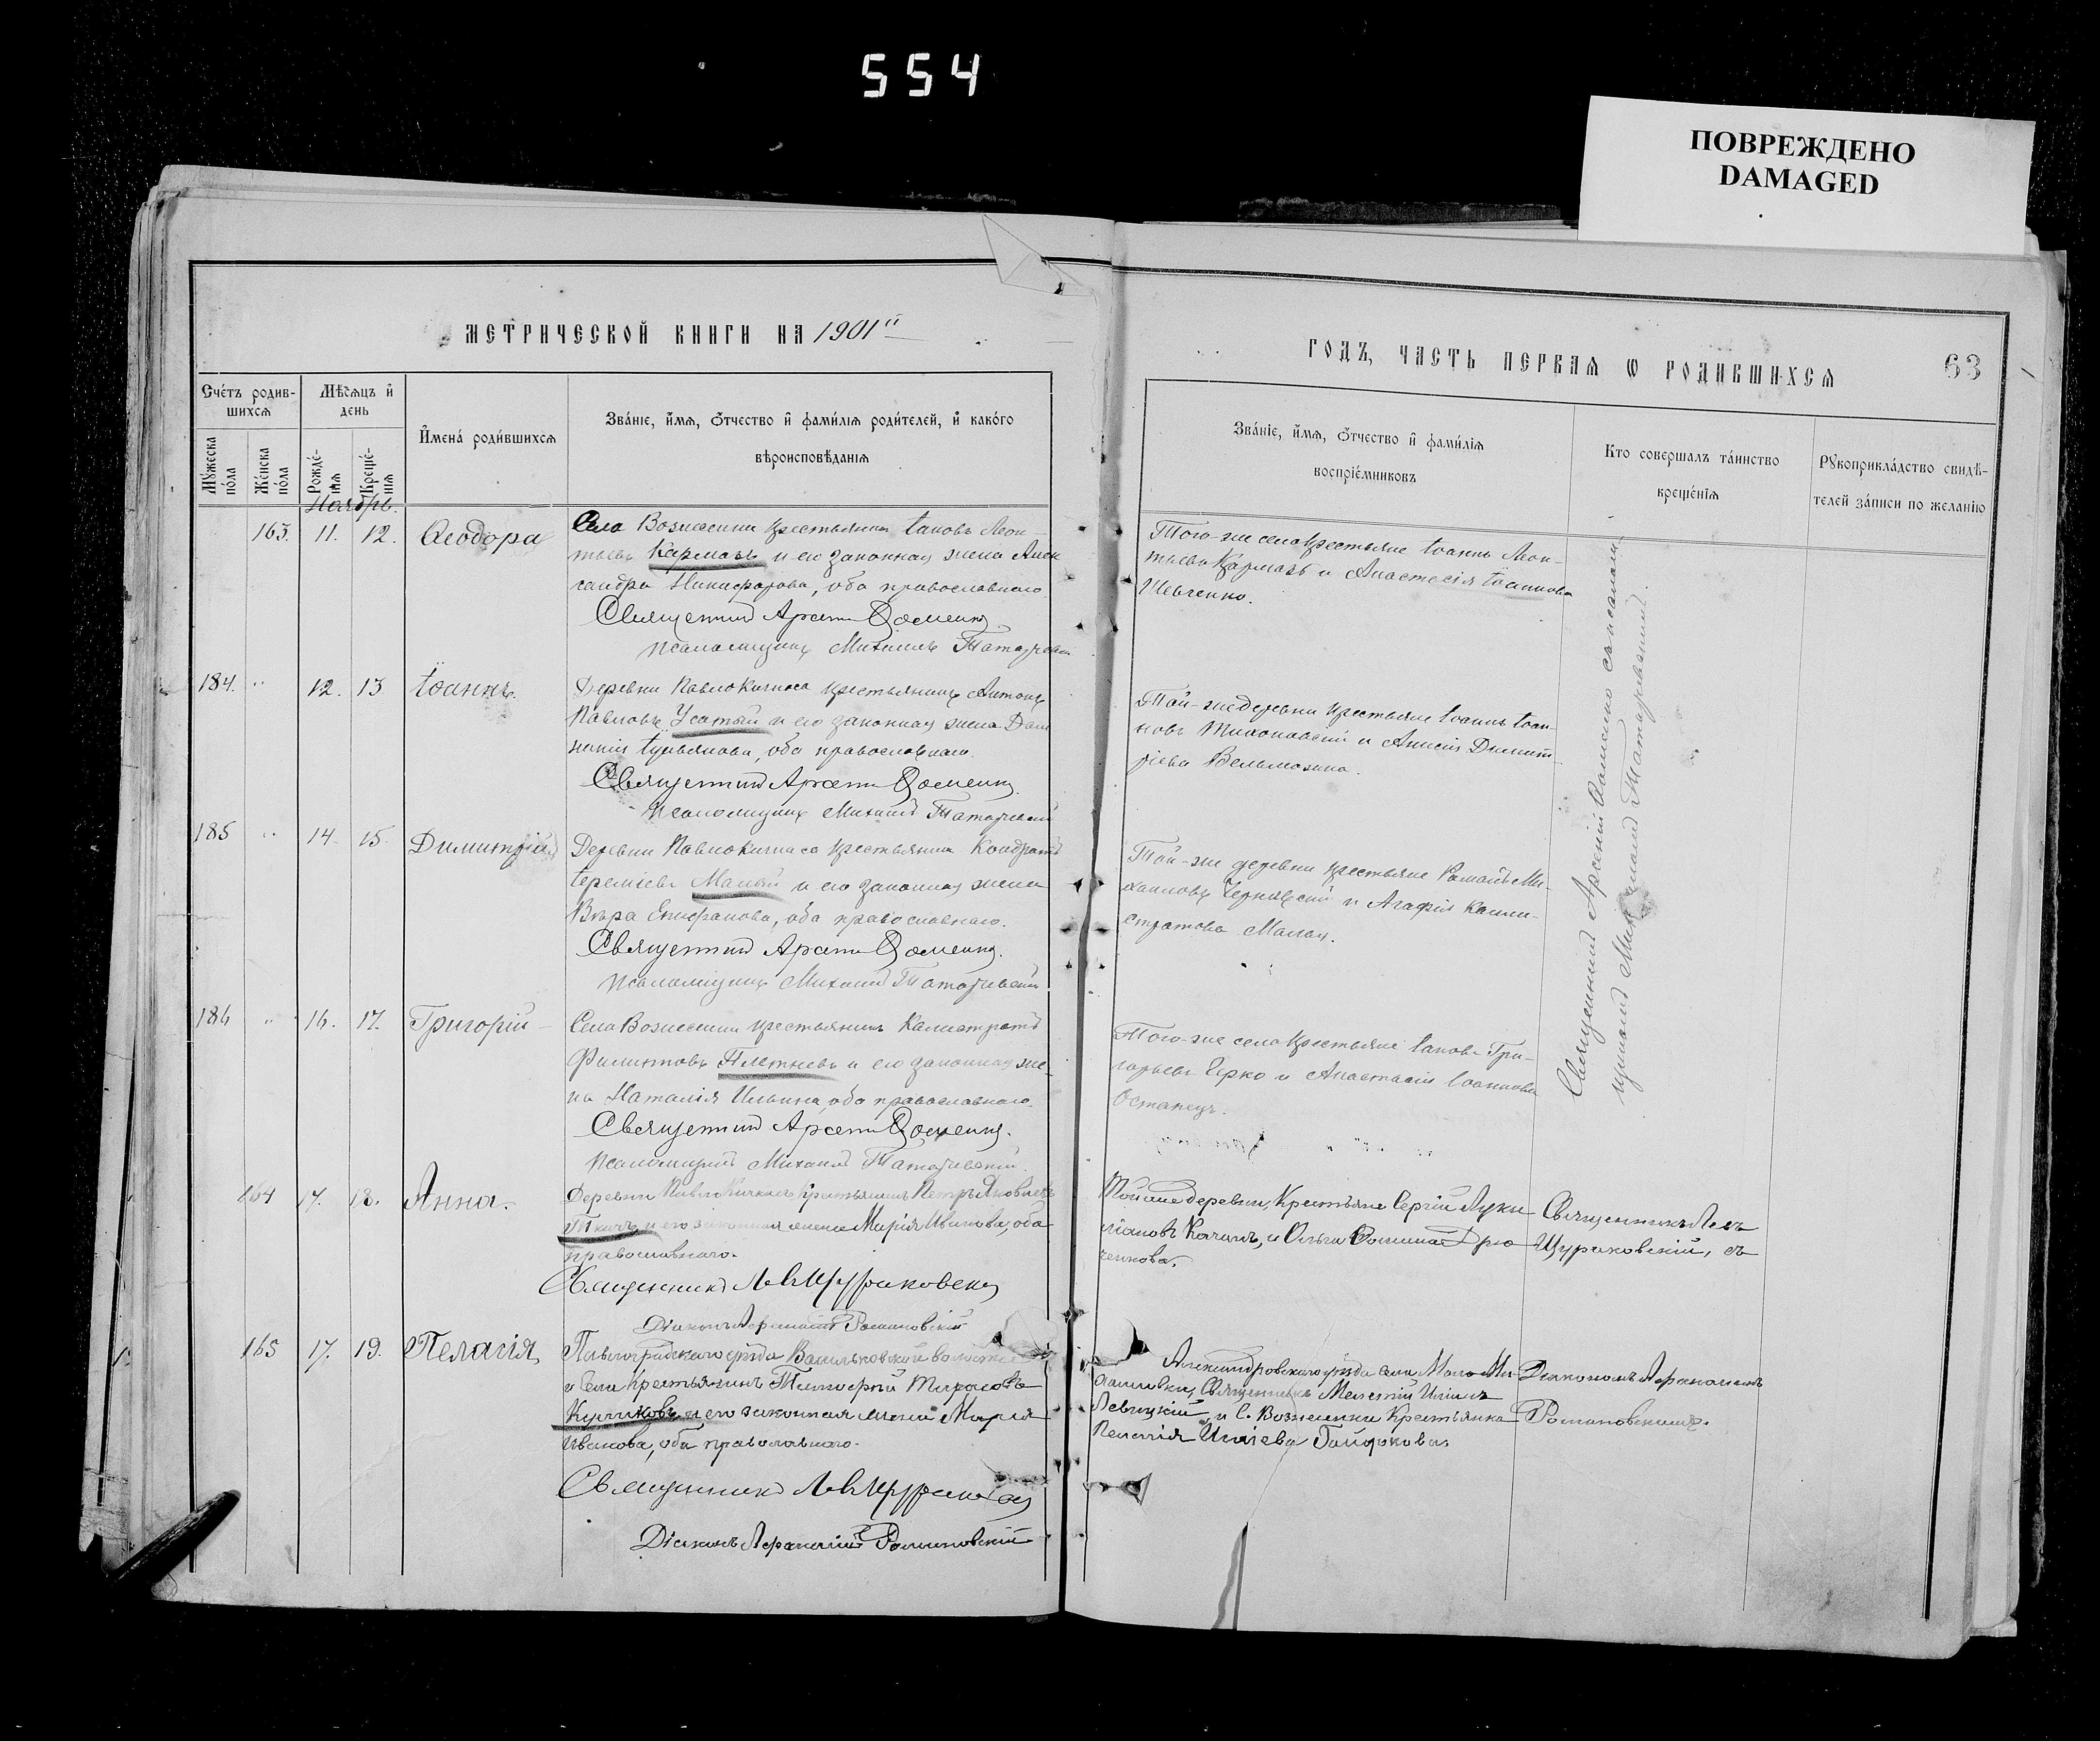 554
ПОВРЕЖДЕНО
DAMAGED
МЕТРИЧЕСКОЙ КНИГИ НА 1901й
ГОДЪ, ЧАСТЬ ПЕРВАЯ Ѡ РОДИВШИХСЯ
63
Счетъ родив-
шихся
Мѣсяцъ и
день
Имена родившихся
Званіе, имя, отчество и фамилія родителей, и какого
вѣроисповѣданія
Мужеска пола
Женска пола
Рожде-
нія
Креще-
нія
Званіе, имя, отчество и фамилія
воспріемниковъ
Кто совершалъ таинство
крещенія
Рукоприкладство свидѣ-
телей записи по желанію
Ноябрь.
163. 11. 12. Ѳеодора
Села Вознесенки крестьянинъ Іаковъ Леон-
тьевъ Кармазъ и его законная жена Алек
сандра Никифорова, оба православнаго.
Священникъ Арсеній Доменко
Псаломщикъ Михаилъ
Того-же села крестьяне Іоаннъ Леон-
тьевъ Кармазъ и Анастасія Іоаннова
Шевченко.
184. " 12. 13 Іоаннъ.
Деревни Павло Кичкаса крестьянинъ Антонъ
Павловъ Усатый и его законная жена Дом
никія Іуліанова, оба православнаго.
Священникъ Арсеній Доменко.
Псаломщикъ Михаилъ
Той-же деревни крестьяне Іоаннъ Іоан-
новъ Тихоновскій и Анисія Димит-
ріева Вельможина.
185 " 14. 15. Димитрій
Деревни Павло Кичкаса крестьянинъ Кондратъ
Іереміевъ Малый и его законная жена
Вѣра Епифанова, оба православнаго.
Священникъ Арсеній Доменко.
Псаломщикъ Михаилъ
Той-же деревни крестьяне Романъ Ми-
хаиловъ Чернявскій и Агафія Калли-
стратова Малая.
186 " 16. 17. Григорій
Села Вознесенки крестьянинъ Калистратъ
Филиповъ Плетневъ и его законная же-
на Наталія Ильина, оба православнаго.
Священникъ Арсеній Доменко.
Псаломщикъ Михаилъ
Того-же села крестьяне Іаковъ Гри-
горьевъ Герко и Анастасія Іоаннова
Остапецъ.
Священникъ Арсеній Доменко съ псалом-
щикомъ Михаиломъ
164 17. 18. Анна.
Деревни Павло Кичкасъ Крестьянинъ Петръ Яковлевъ
Ткачъ, и его законная жена Марія Иванова, оба
православнаго.
Священникъ Левъ Щураковскій
Діаконъ Романовскій
Той же деревни, Крестьяне Сергій Луки
ліановъ Качанъ, и Ольга
ченкова.
Священникъ Левъ
Щураковскій, съ
165 17. 19. Пелагія
Павлоградскаго уѣзда Васильковской волости
и села крестьянинъ Тимофей
и его законная жена Марія
Иванова, оба православнаго.
Священникъ Левъ Щураковскій
Діаконъ Романовскій
Александровскаго уѣзда села Мало Ми-
хайловки, Священникъ Мелетій
Левицкій, и с. Вознесенки Крестьянка
Пелагія
Діакономъ
Романовскимъ.